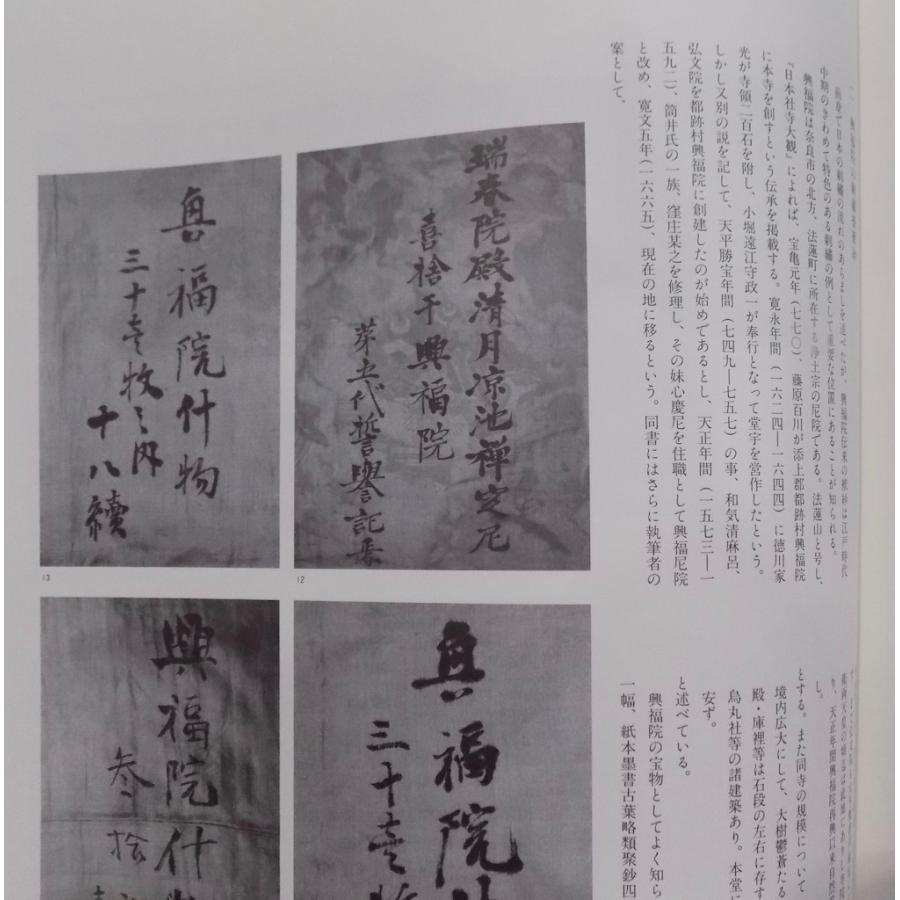 前章で日本の刺繍の流れのあらましを述べたが、興福院伝来の袱紗は江戸時代
中期のきわめて特色のある刺繍の例として重要な位置にあることが知られる。
興福院は奈良市の北方、法蓮町に所在する浄土宗の尼院である。法蓮山と号し、
『日本社寺大観』によれば、宝亀元年(七七〇)、藤原百川が添上郡都跡村興福院
に本寺を創すという伝承を掲載する。寛永年間(一六二四―一六四四)に徳川家
光が寺領二百石を附し、小堀遠江守政一が奉行となって堂宇を営作したという。
しかし又別の説を記して、天平勝宝年間(七四九―七五七)の事、和気清麻呂、
弘文院を都跡村興福院に創建したのが始めであるとし、天正年間(一五七三―一
五九二)、筒井氏の一族、窪庄某之を修理し、その妹心慶尼を住職として興福尼院
と改め、寛文五年(一六六五)、現在の地に移るという。同書にはさらに執筆者の
案として、
り、天正年間興福院再興以来自然
し。
とする。また同寺の規模について
境内広大にして、大樹鬱蒼たる
殿・庫裡等は石段の左右に存す
烏丸社等の諸建築あり。本堂に
安ず。
と述べている。
興福院の宝物としてよく知ら
一幅、紙本墨書古葉略類聚鈔四
瑞春院殿清月凉池禅定尼
喜捨于興福院
第五代誓譽記焉
12
興福院什物
三十壱枚之内
十八續
13
興福院什
三十壱
興福院什
参拾